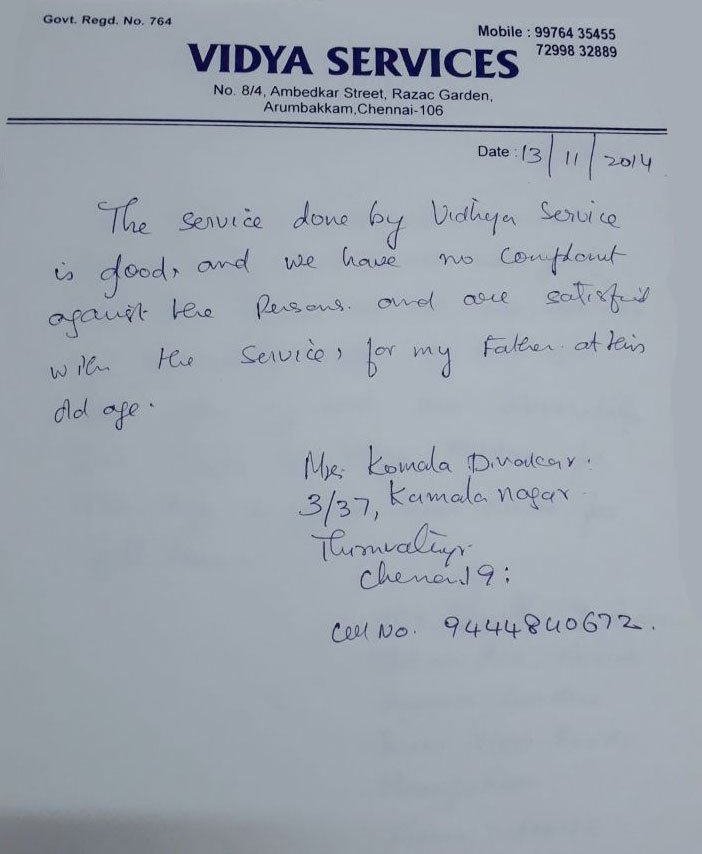 Govt. Regd. No. 764
Mobile : 99764 35455
72998 32889
VIDYA SERVICES
No. 8/4, Ambedkar Street, Razac Garden,
Arumbakkam,Chennai-106
Date : 13/11/2014
The service done by Vidhya Service
is good, and we have no complaint
against the Persons. and are satisfied
with the service, for my Father. at this
old age.
Mrs. Komala Divakar.
3/37, Kamala nagar
Thiruvatiyr
Chennai 19:
Cell No. 9444840672.